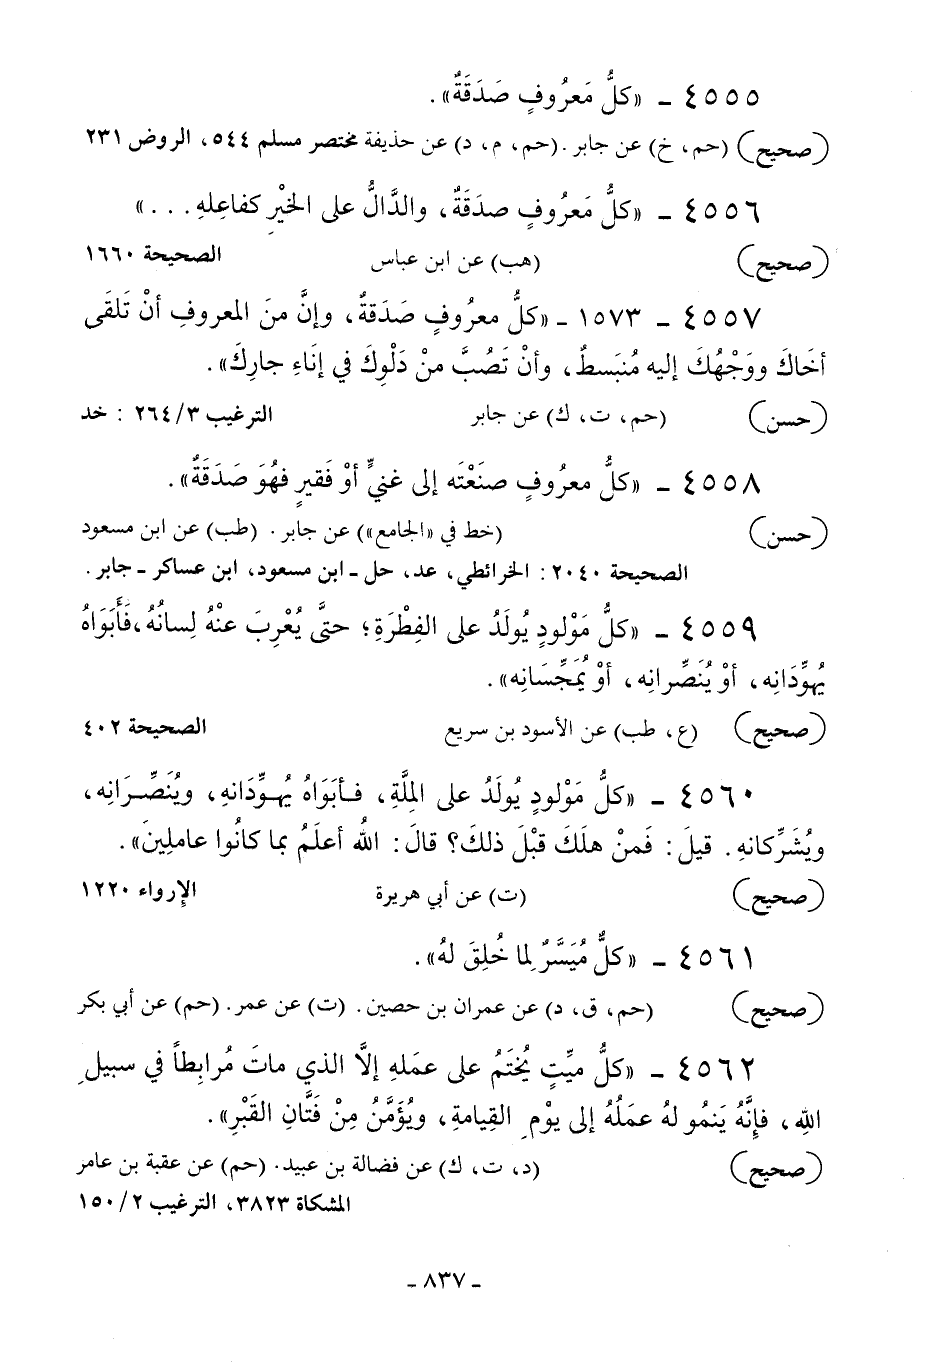 ٤٥٥٥ - «كلُّ مَعرُوفٍ صَدَقَةٌ».
(صحيح) (حم، خ) عن جابر. (حم، م، د) عن حذيفة مختصر مسلم ٥٤٤، الروض ٢٣١
٤٥٥٦ - «كلُّ مَعرُوفٍ صدَقَةٌ، والدَّالُّ على الخيْرِ كفاعِلهِ...»
(صحيح) (هب) عن ابن عباس الصحيحة ١٦٦٠
٤٥٥٧ - ١٥٧٣ - «كلُّ معرُوفٍ صَدَقةٌ، وإنَّ منَ المعروفِ أنْ تَلقَى
أخَاكَ ووَجْهُكَ إليه مُنبَسطٌ، وأنْ تَصُبَّ منْ دَلْوِكَ في إنَاءِ جارِكَ».
(حسن) (حم، ت، ك) عن جابر الترغيب ٣/٢٦٤ : خد
٤٥٥٨ - «كلُّ معرُوفٍ صنَعْتَه إلى غنيٍّ أوْ فَقيرٍ فهُوَ صَدَقَةٌ».
(حسن) (خط في «الجامع») عن جابر. (طب) عن ابن مسعود
الصحيحة ٢٠٤٠ : الخرائطي، عد، حل - ابن مسعود، ابن عساكر - جابر.
٤٥٥٩ - «كلُّ مَوْلودٍ يُولَدُ على الفِطْرَةِ؛ حتَّى يُعْرِبَ عنْهُ لِسانُهُ، فَأَبَوَاهُ
يُهوِّدَانِه، أوْ يُنَصِّرانِه، أوْ يُمَجِّسَانِه».
(صحيح) (ع، طب) عن الأسود بن سريع الصحيحة ٤٠٢
٤٥٦٠ - «كلُّ مَوْلودٍ يُولَدُ على المِلَّةِ، فـأبَوَاهُ يُهـوِّدَانهِ، ويُنَصِّـرَانِه،
ويُشَرِّكانهِ. قيلَ: فَمنْ هلَكَ قبْلَ ذلكَ؟ قالَ: اللهُ أعلَمُ بما كانُوا عاملِينَ».
(صحيح) (ت) عن أبي هريرة الإرواء ١٢٢٠
٤٥٦١ - «كلٌّ مُيَسَّرٌ لما خُلِقَ لهُ».
(صحيح) (حم، ق، د) عن عمران بن حصين. (ت) عن عمر. (حم) عن أبي بكر
٤٥٦٢ - «كلُّ ميِّتٍ يُختَمُ على عمَلهِ إلاَّ الذي ماتَ مُرابِطاً في سبيلِ
اللهِ، فإنَّهُ يَنمُو لهُ عمَلُهُ إلى يوْمِ القِيامةِ، ويُؤَمَّنُ مِنْ فَتَّانِ القَبْرِ».
(صحيح) (د، ت، ك) عن فضالة بن عبيد. (حم) عن عقبة بن عامر
المشكاة ٣٨٢٣، الترغيب ٢/١٥٠
- ٨٣٧ -